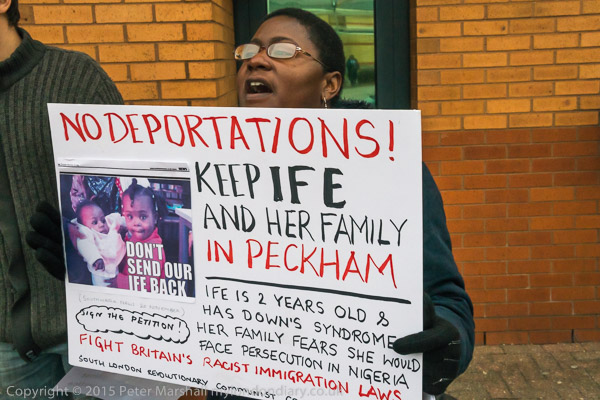 NO DEPORTATIONS!
KEEP IFE
AND HER FAMILY
IN PECKHAM
DON'T
SEND OUR
IFE BACK
SIGN THE PETITION!
IFE IS 2 YEARS OLD &
HAS DOWN'S SYNDROME
HER FAMILY FEARS SHE WOULD
FACE PERSECUTION IN NIGERIA
FIGHT BRITAIN'S RACIST IMMIGRATION LAWS
SOUTH LONDON REVOLUTIONARY COMMUNIST
Copyright © 2015 Peter Marshall mylondondiary.co.uk